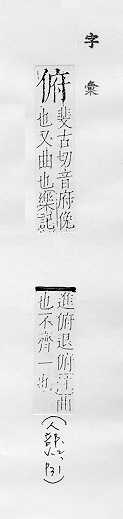 字彙
俯
斐古切音府俛
也又曲也樂記
進俯退俯注曲
也不齊一也